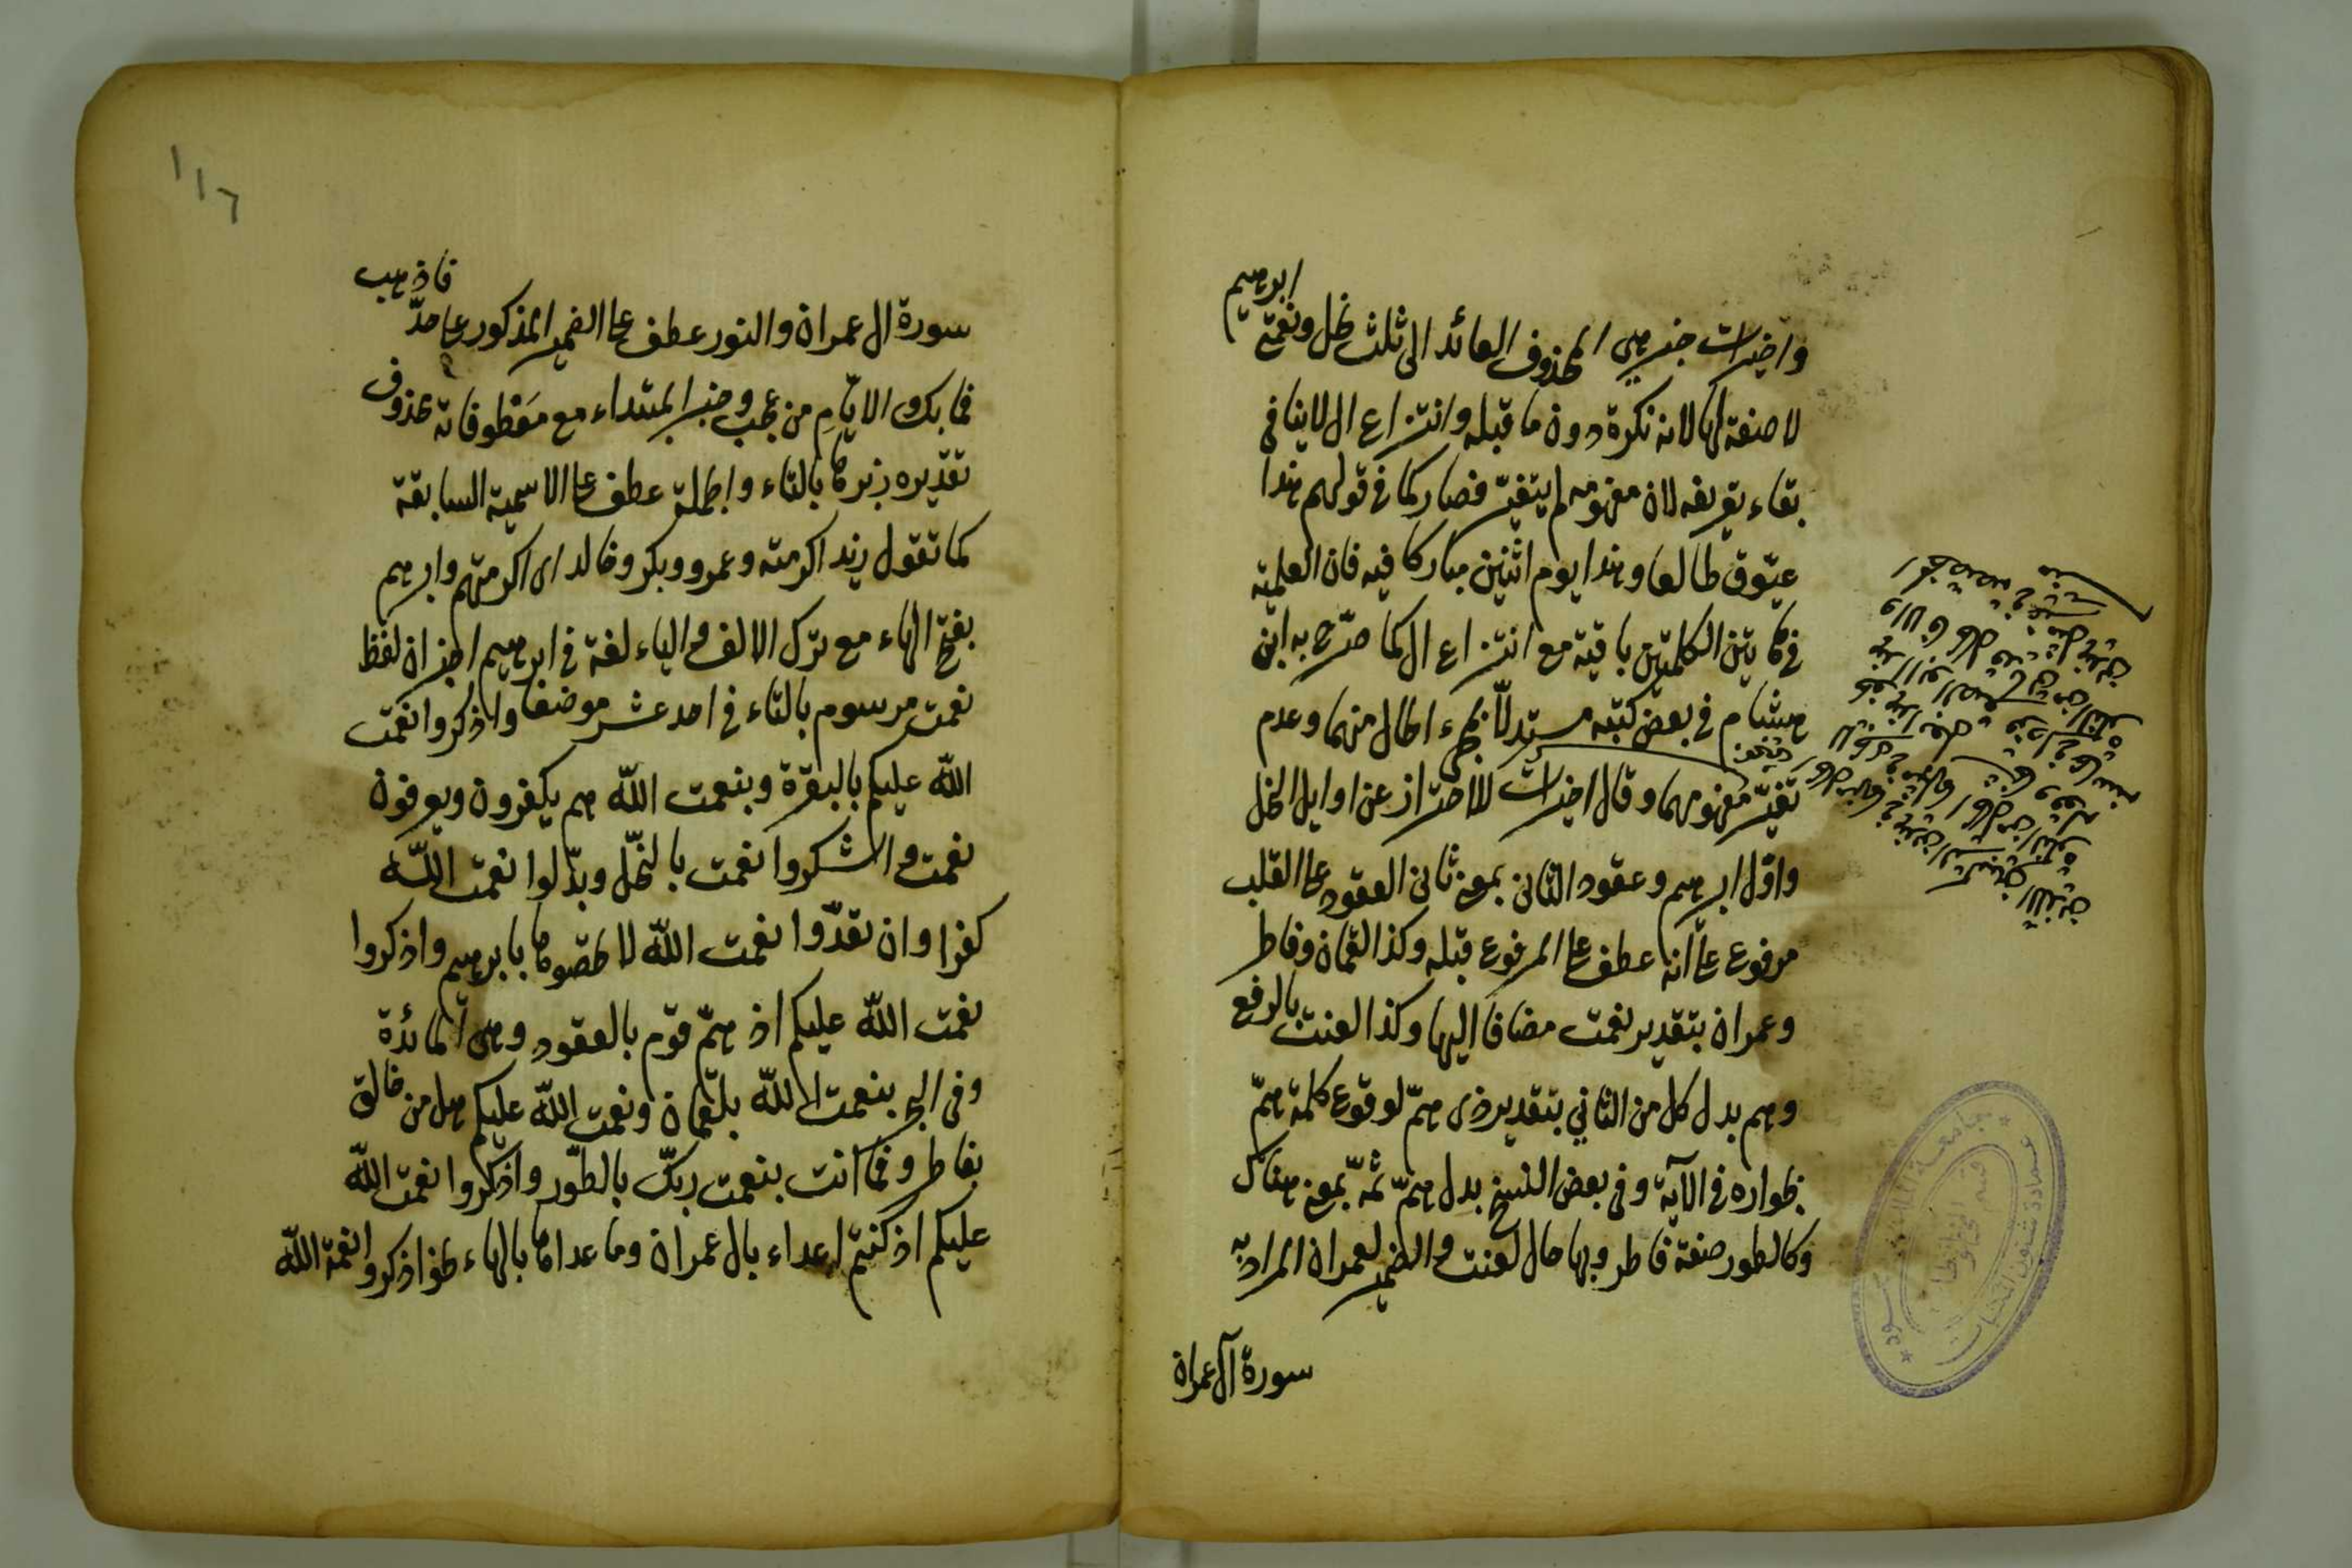 ابرهيم
واخيرات خبر هى المحذوف العائد الى ثلث نحل ونعمتع
لا صفة لها لانه نكرة دون ما قبله وانتزاع ال لا ينافى
بقاء تعريفه لان مفهومه لم يتغير فصار كما فى قولهم هذا
عيّوق طالعا وهذا يوم اثنين مباركا فيه فان العلمية
فى هاتين الكلمتين باقية مع انتزاع ال كما صرّح به ابن
هشام فى بعض كتبه مستدلّا بمجىء الحال منهما وعدم
تغيّر مفهومهما وقال اخيرات للاحتراز عن اوايل النحل
واوّل ابرهيم وعقود الثانى بمعنى ثانى العقود على القلب
مرفوع على انه عطف على المرفوع قبله وكذا لقمان وفاطر
وعمران بتقدير نعمت مضافا اليها وكذا لعنت بالرفع
وهم بدل كل من الثاني بتقدير ذى همّ لوقوع كلمة همّ
بجواره فى الآية وفى بعض النسخ بدل همّ ثمّه بمعنى هناك
وكالطور صفة فاطر وبها حال لعنت والضمير لعمران المراد به
سورة آل عمران
١١٦
سورة ال عمران والنور عطف على الضمير المذكور على حدّ فاذهب
فما بك والايّامِ من عجب وخبر المبتداء مع معطوفاته محذوف
تقديره زبرها بالتاء والجملة عطف على الاسمية السابقة
كما تقول زيد اكرمته وعمرو وبكر وخالد اى اكرمتهم وابرهم
بفتح الهاء مع ترك الالف والياء لغة فى ابرهيم اخبر ان لفظ
نعمت مرسوم بالتاء فى احد عشر موضعا واذكروا نعمت
الله عليكم بالبقرة وبنعمت الله هم يكفرون ويعرفون
نعمت واشكروا نعمت بالنحل وبدّلوا نعمت الله
كفرا وان تعدّوا نعمت الله لا تحصوها بابرهيم واذكروا
نعمت الله عليكم اذ همّ قوم بالعقود وهى المائدة
وفى البحر بنعمت الله بلقمان ونعمت الله عليكم هل من خالق
بفاطر وفما انت بنعمت ربّك بالطّور واذكروا نعمت الله
عليكم اذ كنتم اعداء بال عمران وما عداها بالهاء نحو اذكروا نعمة الله